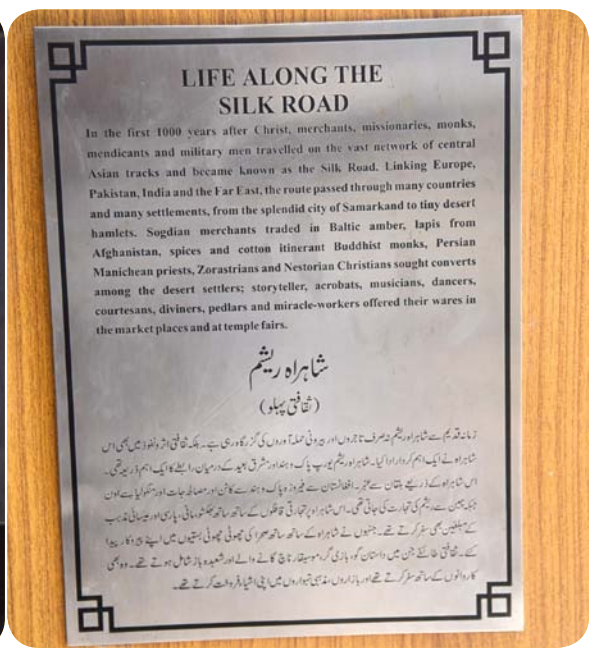 LIFE ALONG THE
SILK ROAD
In the first 1000 years after Christ, merchants, missionaries, monks,
mendicants and military men travelled on the vast network of central
Asian tracks and became known as the Silk Road. Linking Europe,
Pakistan, India and the Far East, the route passed through many countries
and many settlements, from the splendid city of Samarkand to tiny desert
hamlets. Sogdian merchants traded in Baltic amber, lapis from
Afghanistan, spices and cotton itinerant Buddhist monks, Persian
Manichean priests, Zorastrians and Nestorian Christians sought converts
among the desert settlers; storyteller, acrobats, musicians, dancers,
courtesans, diviners, pedlars and miracle-workers offered their wares in
the market places and at temple fairs.
شاہراہ ریشم
(ثقافتی پہلو)
زمانہ قدیم سے شاہراہ ریشم نہ صرف تاجروں اور بیرونی حملہ آوروں کی گزرگاہ رہی ہے۔ بلکہ ثقافتی اثر و نفوذ میں بھی اس
شاہراہ نے ایک اہم کردار ادا کیا۔ شاہراہ ریشم یورپ پاک و ہند اور مشرق بعید کے درمیان رابطے کا ایک اہم ذریعہ تھی۔
اس شاہراہ کے ذریعے بلقان سے عنبر، افغانستان سے فیروزہ پاک و ہند سے کاٹن اور مصالحہ جات اور منگولیا سے اون
جبکہ چین سے ریشم کی تجارت کی جاتی تھی۔ اس شاہراہ پر تجارتی قافلوں کے ساتھ ساتھ بھکشو، مانی، پارسی اور عیسائی مذہب
کے مبلغین بھی سفر کرتے تھے۔ جنہوں نے شاہراہ کے ساتھ ساتھ صحرا کی چھوٹی چھوٹی بستیوں میں اپنے پیروکار پیدا
کئے۔ ثقافتی طائفے جن میں داستان گو، بازی گر، موسیقار ناچ گانے والے اور شعبدہ باز شامل ہوتے تھے۔ وہ بھی
کاروانوں کے ساتھ سفر کرتے تھے اور بازاروں مذہبی تہواروں میں اپنی اشیاء فروخت کرتے تھے۔